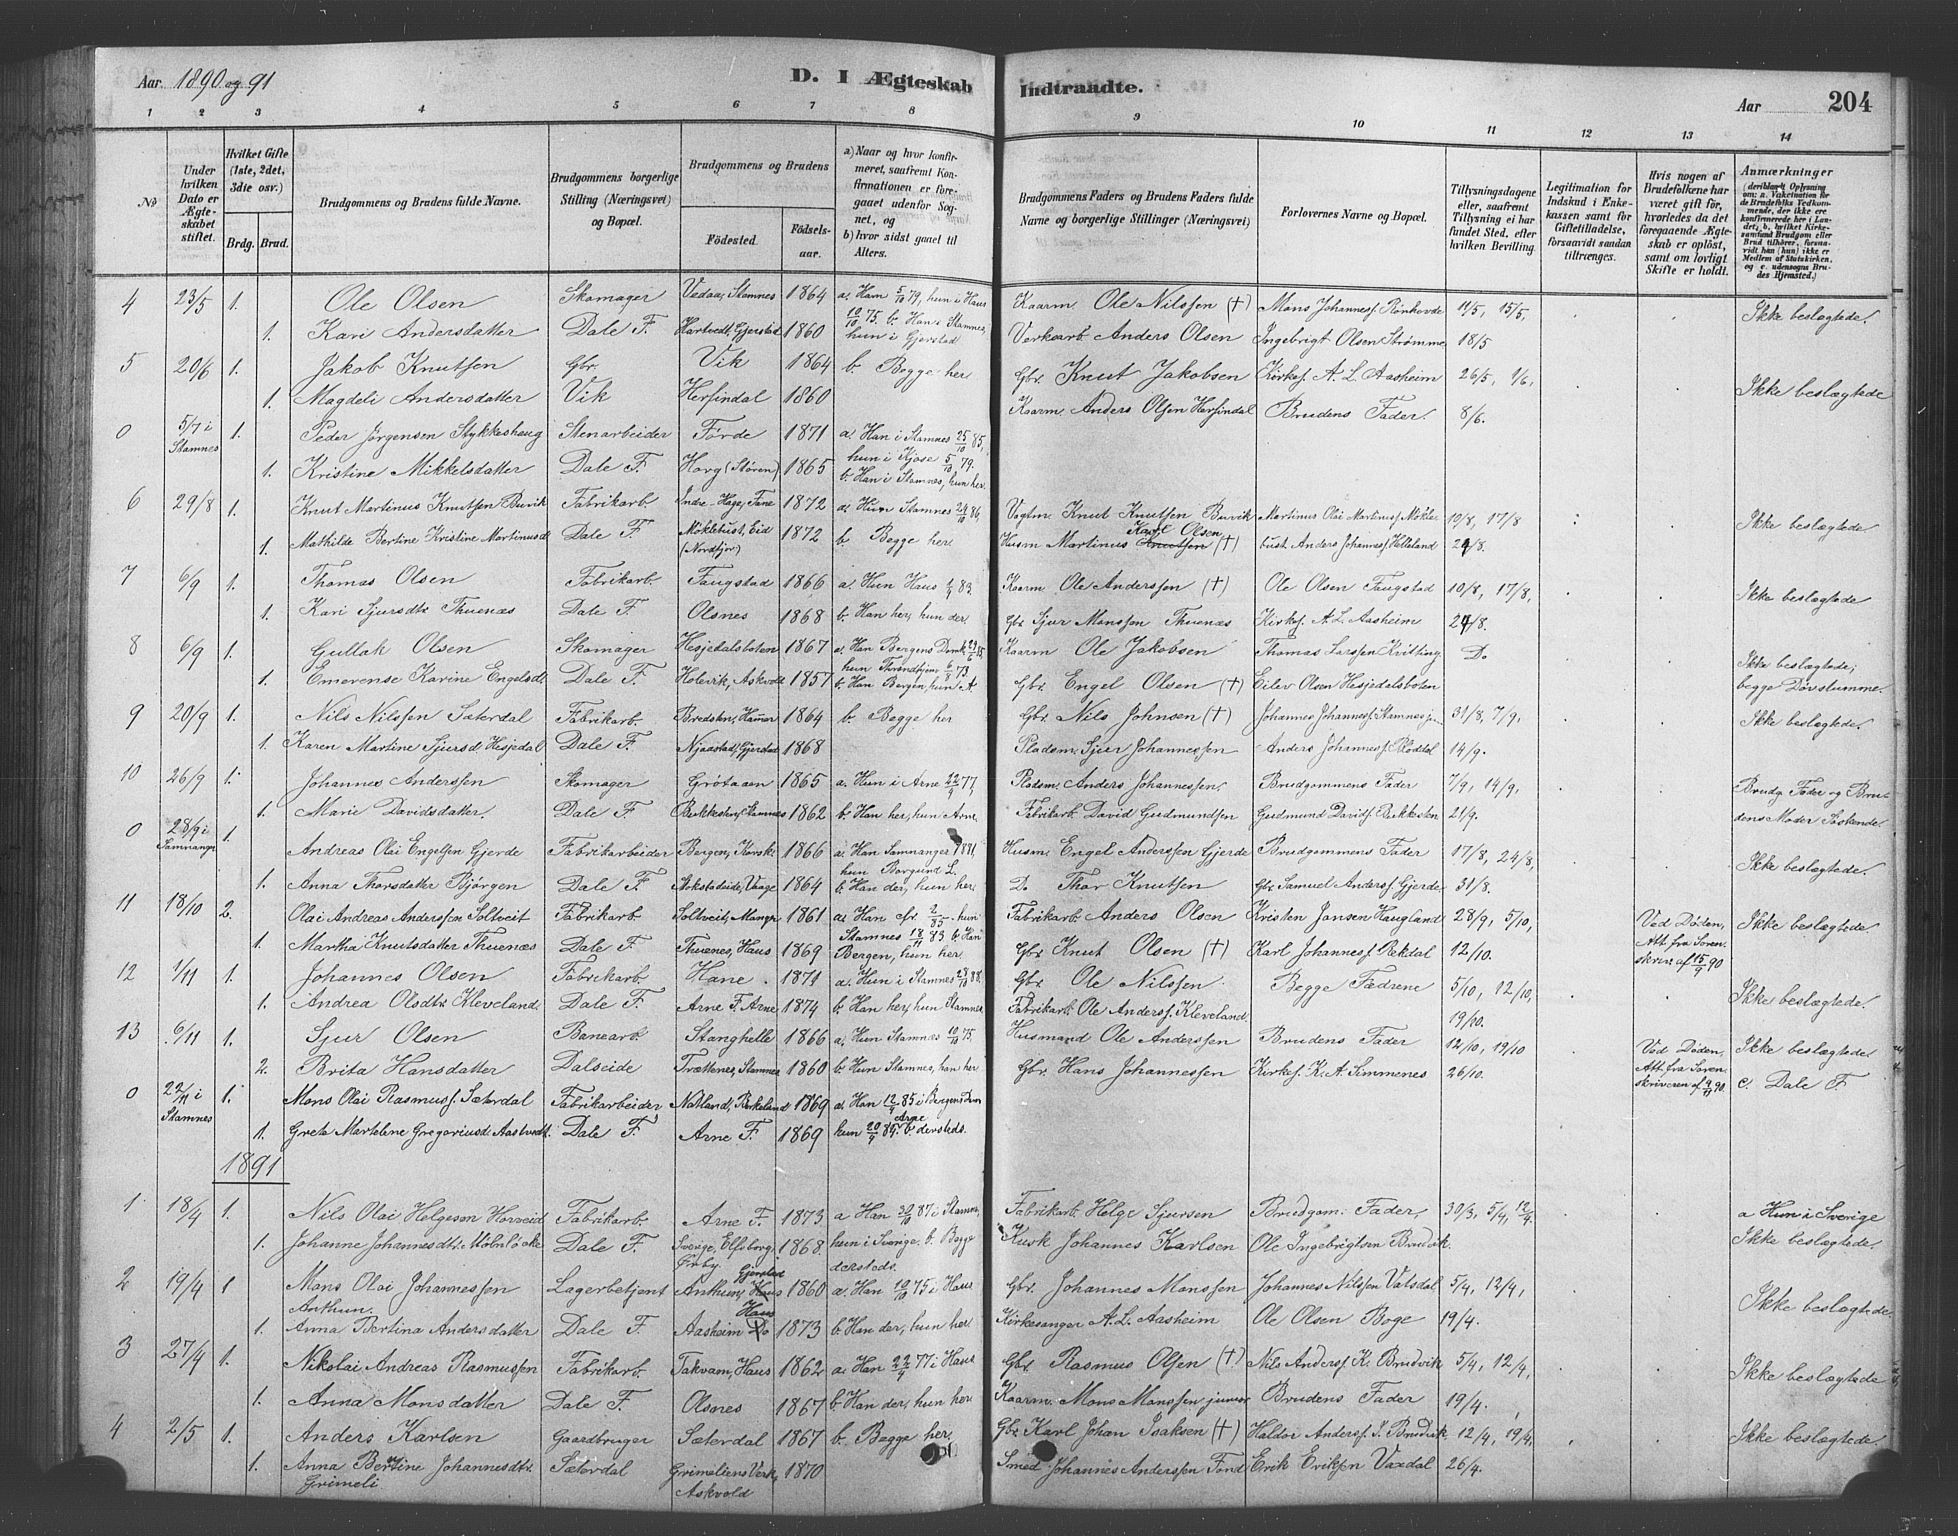 Aar 1890 og 91
D. I Ægteskab
Indtraadte.
Aar
204
1 2 3 4 5 6 7 8 9 10 11 12 13 14
No
Under hvilken Dato er Ægteskabet stiftet.
Hvilket Gifte (1ste, 2det, 3die osv.)
Brdg. Brud.
Brudgommens og Brudens fulde Navne.
Brudgommens borgerlige Stilling (Næringsvei) og Bopæl.
Brudgommens og Brudens
Fødested.
Fødsels-aar.
a) Naar og hvor konfirmeret, saafremt Konfirmationen er foregaaet udenfor Sognet, og
b) hvor sidst gaaet til Alters.
Brudgommens Faders og Brudens Faders fulde Navne og borgerlige Stillinger (Næringsvei)
Forlovernes Navne og Bopæl.
Tillysningsdagene eller, saafremt Tillysning ei har fundet Sted, efter hvilken Bevilling.
Legitimation for Indskud i Enkekassen samt for Giftetilladelse, forsaavidt saadan tiltrænges.
Hvis nogen af Brudefolkene har været gift før, hvorledes da det foregaaende Ægteskab er opløst, samt om lovligt Skifte er holdt.
Anmærkninger
4 23/5 1. Ole Olsen Skomager Vedaa, Stamnes 1864 a. Ham 5/10 79, hun i Haus Kaarm Ole Nilssen (†) Mons Johannesf. Rønhovde 11/5, 15/5, Ikke beslægtede.
1. Kari Andersdatter Dale F. Hartvedt, Gjerstad 1860 10/10 75. b. Han i Stamnes, hun i Gjerstad Verkearb Anders Olsen Ingebrigt Olsen Strømme 18/5
5 20/6 1. Jakob Knutsen Gbr. Vik 1864 b. Begge her Gbr. Knut Jakobsen Kirkes. A. L. Aasheim 26/5, 1/6, Ikke beslægtede
1. Magdeli Andersdatter Vik Herfindal 1860 Kaarm. Anders Olsen Herfindal Brudens Fader. 8/6.
0 5/7 i Stamnes 1. Peder Jørgensen Stykkeshaug Stenarbeider Førde 1871 a. Han i Stamnes 25/10 85,
1. Kristine Mikkelsdatter Dale F. Horg (Støren) 1865 hun i Kjose 5/10 79. b. Han i Stamnes, hun her.
6 29/8 1. Knut Martinus Knutsen Buvik Fabrikarb. Indre-Hage, Fane 1872 a. Hun Stamnes 24/10 86 Vagtm Knut Knutsen Buvik Martinus Olai Martinusf. Mökle- 10/8, 17/8 Ikke beslægtede
1. Mathilde Bertine Kristine Martinusd. Dale F. Möklebust, Eid (Nordfjr) 1872 b. Begge her Husm Martinus Karl Olsen (†) bust Anders Johannesf. Helleland 24/8.
7 6/9 1. Thomas Olsen Fabrikarb. Faugstad 1866 a. Hun Haus 83 Kaarm Ole Anderssen (†) Ole Olsen Faugstad 10/8, 17/8, Ikke beslægtede
1. Kari Sjursdtr. Thuenæs Dale F. Olsnes 1868 b. Han her, hun der Gbr. Sjur Monssen Thuenæs Kirkes. A. L. Aasheim 24/8.
8 6/9 1. Gullak Olsen Skomager Hesjedalsboten 1867 a. Han Bergens Domk. Kaarm Ole Jakobsen Thomas Larssen Kvitting Do. Ikke beslægtede;
1. Emerense Karine Engelsdt Dale F. Holevik, Askvold 1857 hun Throndhjem 6/8 73. b. Han Bergen, hun A. Gbr. Engel Olsen (†) Eilev Olsen Hesjedalsboten begge Døvstumme.
9 20/9 1. Nils Nilssen Sæterdal Fabrikarb. Bredsten, Hamer 1864 b. Begge her Gbr. Nils Johnsen (†) Johannes Johannesf. Stamnesjen 31/8, 7/9, Ikke beslægtede.
1. Karen Martine Sjursd. Hesjedal Dale F. Njaastad, Gjerstad 1868 Pladsm. Sjur Johannessen Anders Johannesf. Bloddal 14/9.
10 26/9 1. Johannes Anderssen Skomager Grøtaaen 1865 a. Hun i Arne 22/9 77, Pladsm. Anders Johannessen Brudgommens Fader 7/9, 14/9, Brudg. Fader og Bru-
1. Marie Davidsdatter. Dale F. Bukkesten, Stamnes 1862 b. Han her, hun Arne Fabrikarb. David Gudmundsen Gudmund Davidf. Bukkesten 21/9. dens Moder Søskende.
0 28/9 i Samnanger 1. Andreas Olai Engelsen Gjerde Fabrikarbeider Bergen, Korsk. 1866 a. Han Samnanger 1881, Husm. Engel Anderssen Gjerde Brudgommens Fader 17/8, 24/8, Ikke beslægtede.
1. Anna Thorsdatter Bjørgen Dale F. Stokstadeide, Vaage 1864 hun Borgund L. b. Han der, hun her Do. Thor Knutsen Gbr. Samuel Andersf. Gjerde 31/8.
11 18/10 2. Olai Andreas Anderssen Soltveit Fabrikarb. Soltveit, Manger 1861 a. Han cfr. 2/85. hun Fabrikarb. Anders Olsen Kristen Jansen Haugland 28/9, 5/10, Ved Døden, Ikke beslægtede.
1. Martha Knutsdatter Thuenæs Dale F. Thuenes, Haus 1869 Stamnes 18/11 83 b. Han Bergen, hun her. Gbr. Knut Olsen (†) Karl Johannesf. Rekdal 12/10. Att. fra Sorenskriv. af 15/9 90
12 1/11 1. Johannes Olsen Fabrikarb. Hane. 1871 a. Hun i Stamnes 28/10 88. Gbr. Ole Nilssen. Begge Fædrene 5/10, 12/10, Ikke beslægtede.
1. Andrea Olsdtr. Kleveland Dale F. Arne F. Arne 1874 b. Han her, hun Stamnes. Fabrikarb. Ole Andersf. Kleveland 19/10.
13 6/11 1. Sjur Olsen Banearb. Stanghelle 1866 a. Hun Stamnes 10/10 75. Husmand Ole Anderssen Brudens Fader 12/10, 19/10 Ved Døden, Ikke beslægtede
2. Brita Hansdatter Dalseide Trættenes, Stamnes 1860 b. Hun Stamnes, han her Gbr. Hans Johannessen Kirkes. K. A. Simmenes 26/10. Att. fra Sorenskriveren af 90. c. Dale F.
0 22/11 i Stamnes 1. Mons Olai Rasmusf. Sæterdal Fabrikarbeider Natland, Birkeland 1869 a. Han 12/ 85 i Bergens Dom
1. Greta Martelene Gregoriusd. Aastvedt. Dale F. Arne F. 1869 hun 20/9 84. Arne b. dersteds.
1891
1 18/4 1. Nils Olai Helgesen Horveid Fabrikarb. Arne F. 1873 a Han 30/10 87 i Stamnes, Fabrikarb. Helge Sjursen Brudgom. Fader, 30/3, 5/4, 12/4. a Hun i Sverige
1. Johanne Johannesdtr. Møbnlöcke Dale F. Sverige, Elfsborg Örby 1868. hun i Sverige. b. Begge dersteds. Kusk Johannes Karlsen Ole Ingebrigtsen Brudvik. Ikke beslægtede.
2 19/4 1 Mons Olai Johannessen Anthun. Lagerbetjent Anthun, Gjerstad 1860 a. Han 10/10 75 i Haus Gbr. Johannes Monssen Johannes Nilssen Vatsdal 5/4, 12/4, Ikke beslægtede
1. Anna Bertina Andersdatter Dale F. Aasheim Haus 1873 b. Han der, hun her Kirkesanger A. L. Aasheim Ole Olsen Boge 19/4.
3 27/4 1. Nikolai Andreas Rasmussen Fabrikarb. Takvam, Haus 1862 a. Han 22/9 77 i Haus Gbr. Rasmus Olsen (†) Nils Andersf. K. Brudvik 5/4, 12/4, Ikke beslægtede
1. Anna Monsdatter Dale F. Olsnes 1867 b. Han der, hun her Kaarm. Mons Monssen junior Brudens Fader 19/4.
4 2/5 1. Anders Karlsen Gaardbruger Sæterdal 1867 b. Begge her. Gbr. Karl Johan Isaksen (†) Haldor Andersf. I. Brudvik 12/4, 19/4, Ikke beslægtede.
1. Anna Bertine Johannesdtr. Grimeli Sæterdal Grimeliens Verk, Askvold 1870 Smed Johannes Anderssen Fond Erik Eriksen Vaxdal 26/4.